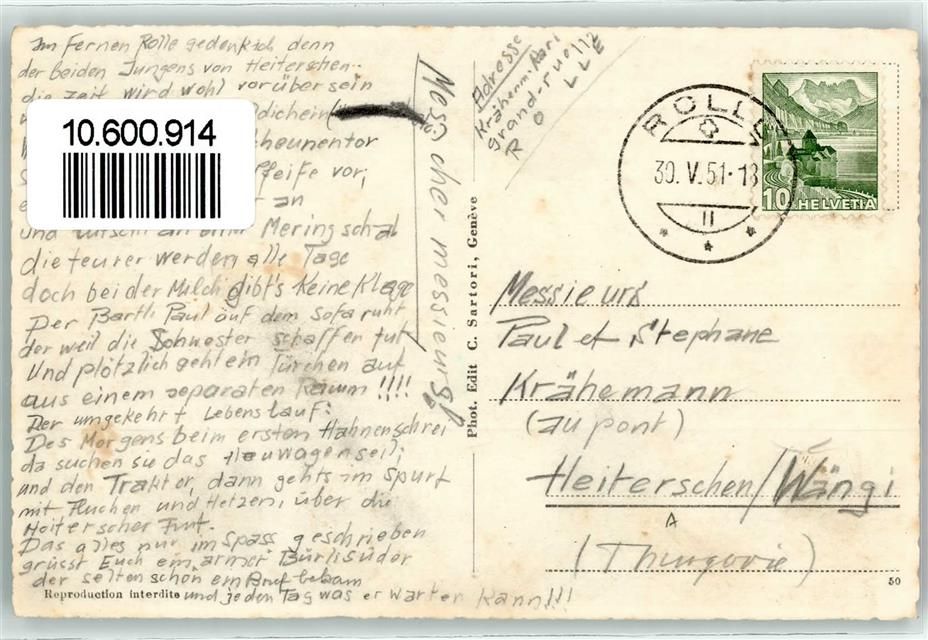 Im Fernen Rolle gedenk ich denn
der beiden Jungens von Heiterschen..
die Zeit wird wohl vorüber sein
10.600.914
feife vor,
an
und
die teurer werden alle Tage
doch bei der Milch gibt's keine Klage
Der Bartli Paul auf dem Sofa ruht
der weil die Schwester schaffen tut
Und plötzlich geht ein Türchen auf
aus einem separaten Raum!!!!
Der umgekehrt Lebenslauf:
Des Morgens beim ersten Hahnenschrei
da suchen sie das Heuwagenseil,
und den Traktor, dann gehts im Spurt
mit Fluchen und Hetzen, über die
Heiterscher Furt.
Das alles nur im Spass geschrieben
grüsst Euch ein armer
der selten schon ein Brief bekam
und jeden Tag was er warten kann!!!
Reproduction interdite
Mes cher messieurs!
Adresse
Krähenm. Pari
grand-
R O L L E
Phot. Edit C. Sartori, Genève
ROLLE
30.V.51-18
II
10 HELVETIA
Messieurs
Paul et Stephane
Krähemann
(au pont)
Heiterschen/Wängi
(Thurgovie)
50